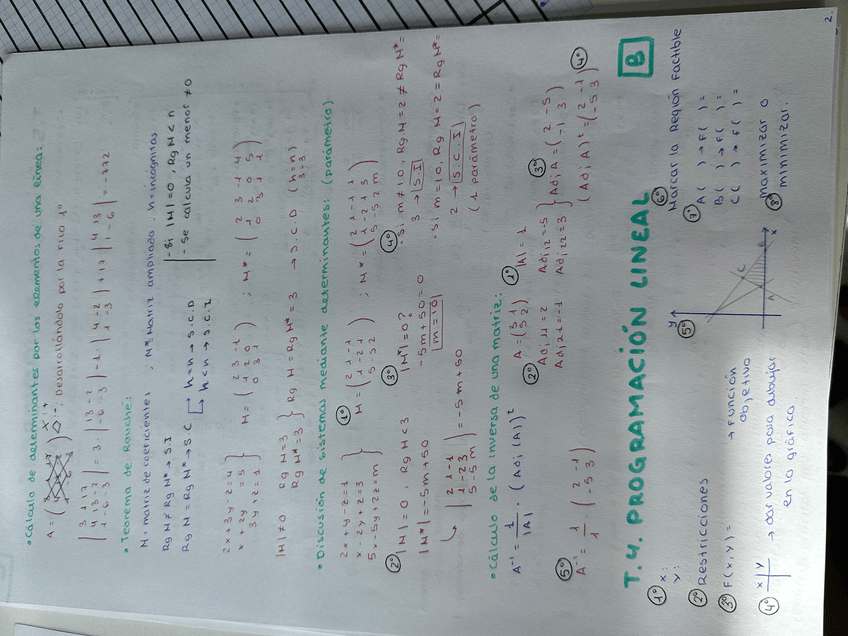 • Cálculo de determinantes por los elementos de una línea:
A = ( ) x: + ◇: - Desarrollándolo por la fila 1ª
| 3 1 17 | 4 13 -2 | 1 -6 -3 | = 3 · | 13 -2 | -6 -3 | - 1 · | 4 -2 | 1 -3 | + 17 | 4 13 | 1 -6 | = -772
• Teorema de Rouché:
M = matriz de coeficientes ; M* = Matriz ampliada . n = incógnitas
Rg M ≠ Rg M* → S.I
Rg M = Rg M* → S C → n = n → S.C.D
n < n → S.C.I
- Si |M| = 0, Rg M < n
- Se calcula un menor ≠ 0
2x + 3y - z = 4
x + 2y = 5
3y + z = 1 } M = ( 2 3 -1 | 1 2 0 | 0 3 1 ) ; M* = ( 2 3 -1 4 | 1 2 0 5 | 0 3 1 1 )
|M| ≠ 0 Rg M = 3
Rg M* = 3 } Rg M = Rg M* = 3 → S.C.D (n = n)
3 = 3
• Discusión de sistemas mediante determinantes: (parámetro).
2x + y - z = 1
x - 2y + z = 3
5x - 5y + 2z = m }
1º M = ( 2 1 -1 | 1 -2 1 | 5 -5 2 ) ; M* = ( 2 1 -1 1 | 1 -2 1 3 | 5 -5 2 m )
2º |M| = 0, Rg M < 3
|M*| = -5m + 50
↳ | 2 1 -1 | 1 -2 3 | 5 -5 m | = -5m + 50
3º |M*| = 0?
-5m + 50 = 0
m = 10
4º
· Si m ≠ 10, Rg M = 2 ≠ Rg M* =
3 → S.I
· Si m = 10, Rg M = 2 = Rg M* =
2 → S.C.I
(1 parámetro)
• Cálculo de la inversa de una matriz:
A⁻¹ = 1/|A| · (Adj (A))ᵗ
A = ( 3 1 | 5 2 ) 1º |A| = 1
2º Adj 11 = 2 Adj 12 = -5
Adj 21 = -1 Adj 22 = 3 }
3º Adj A = ( 2 -5 | -1 3 )
(Adj A)ᵗ = ( 2 -1 | -5 3 ) 4º
5º A⁻¹ = 1/1 ( 2 -1 | -5 3 )
T.4. PROGRAMACIÓN LINEAL B
1º x:
y:
2º Restricciones
3º F(x,y) = → función
objetivo
4º x | y → dar valores para dibujar
en la gráfica
5º
y
x
A
C
6º Marcar la Región Factible
7º A ( ) → F ( ) =
B ( ) → F ( ) =
C ( ) → F ( ) =
8º maximizar o
minimizar.
2.